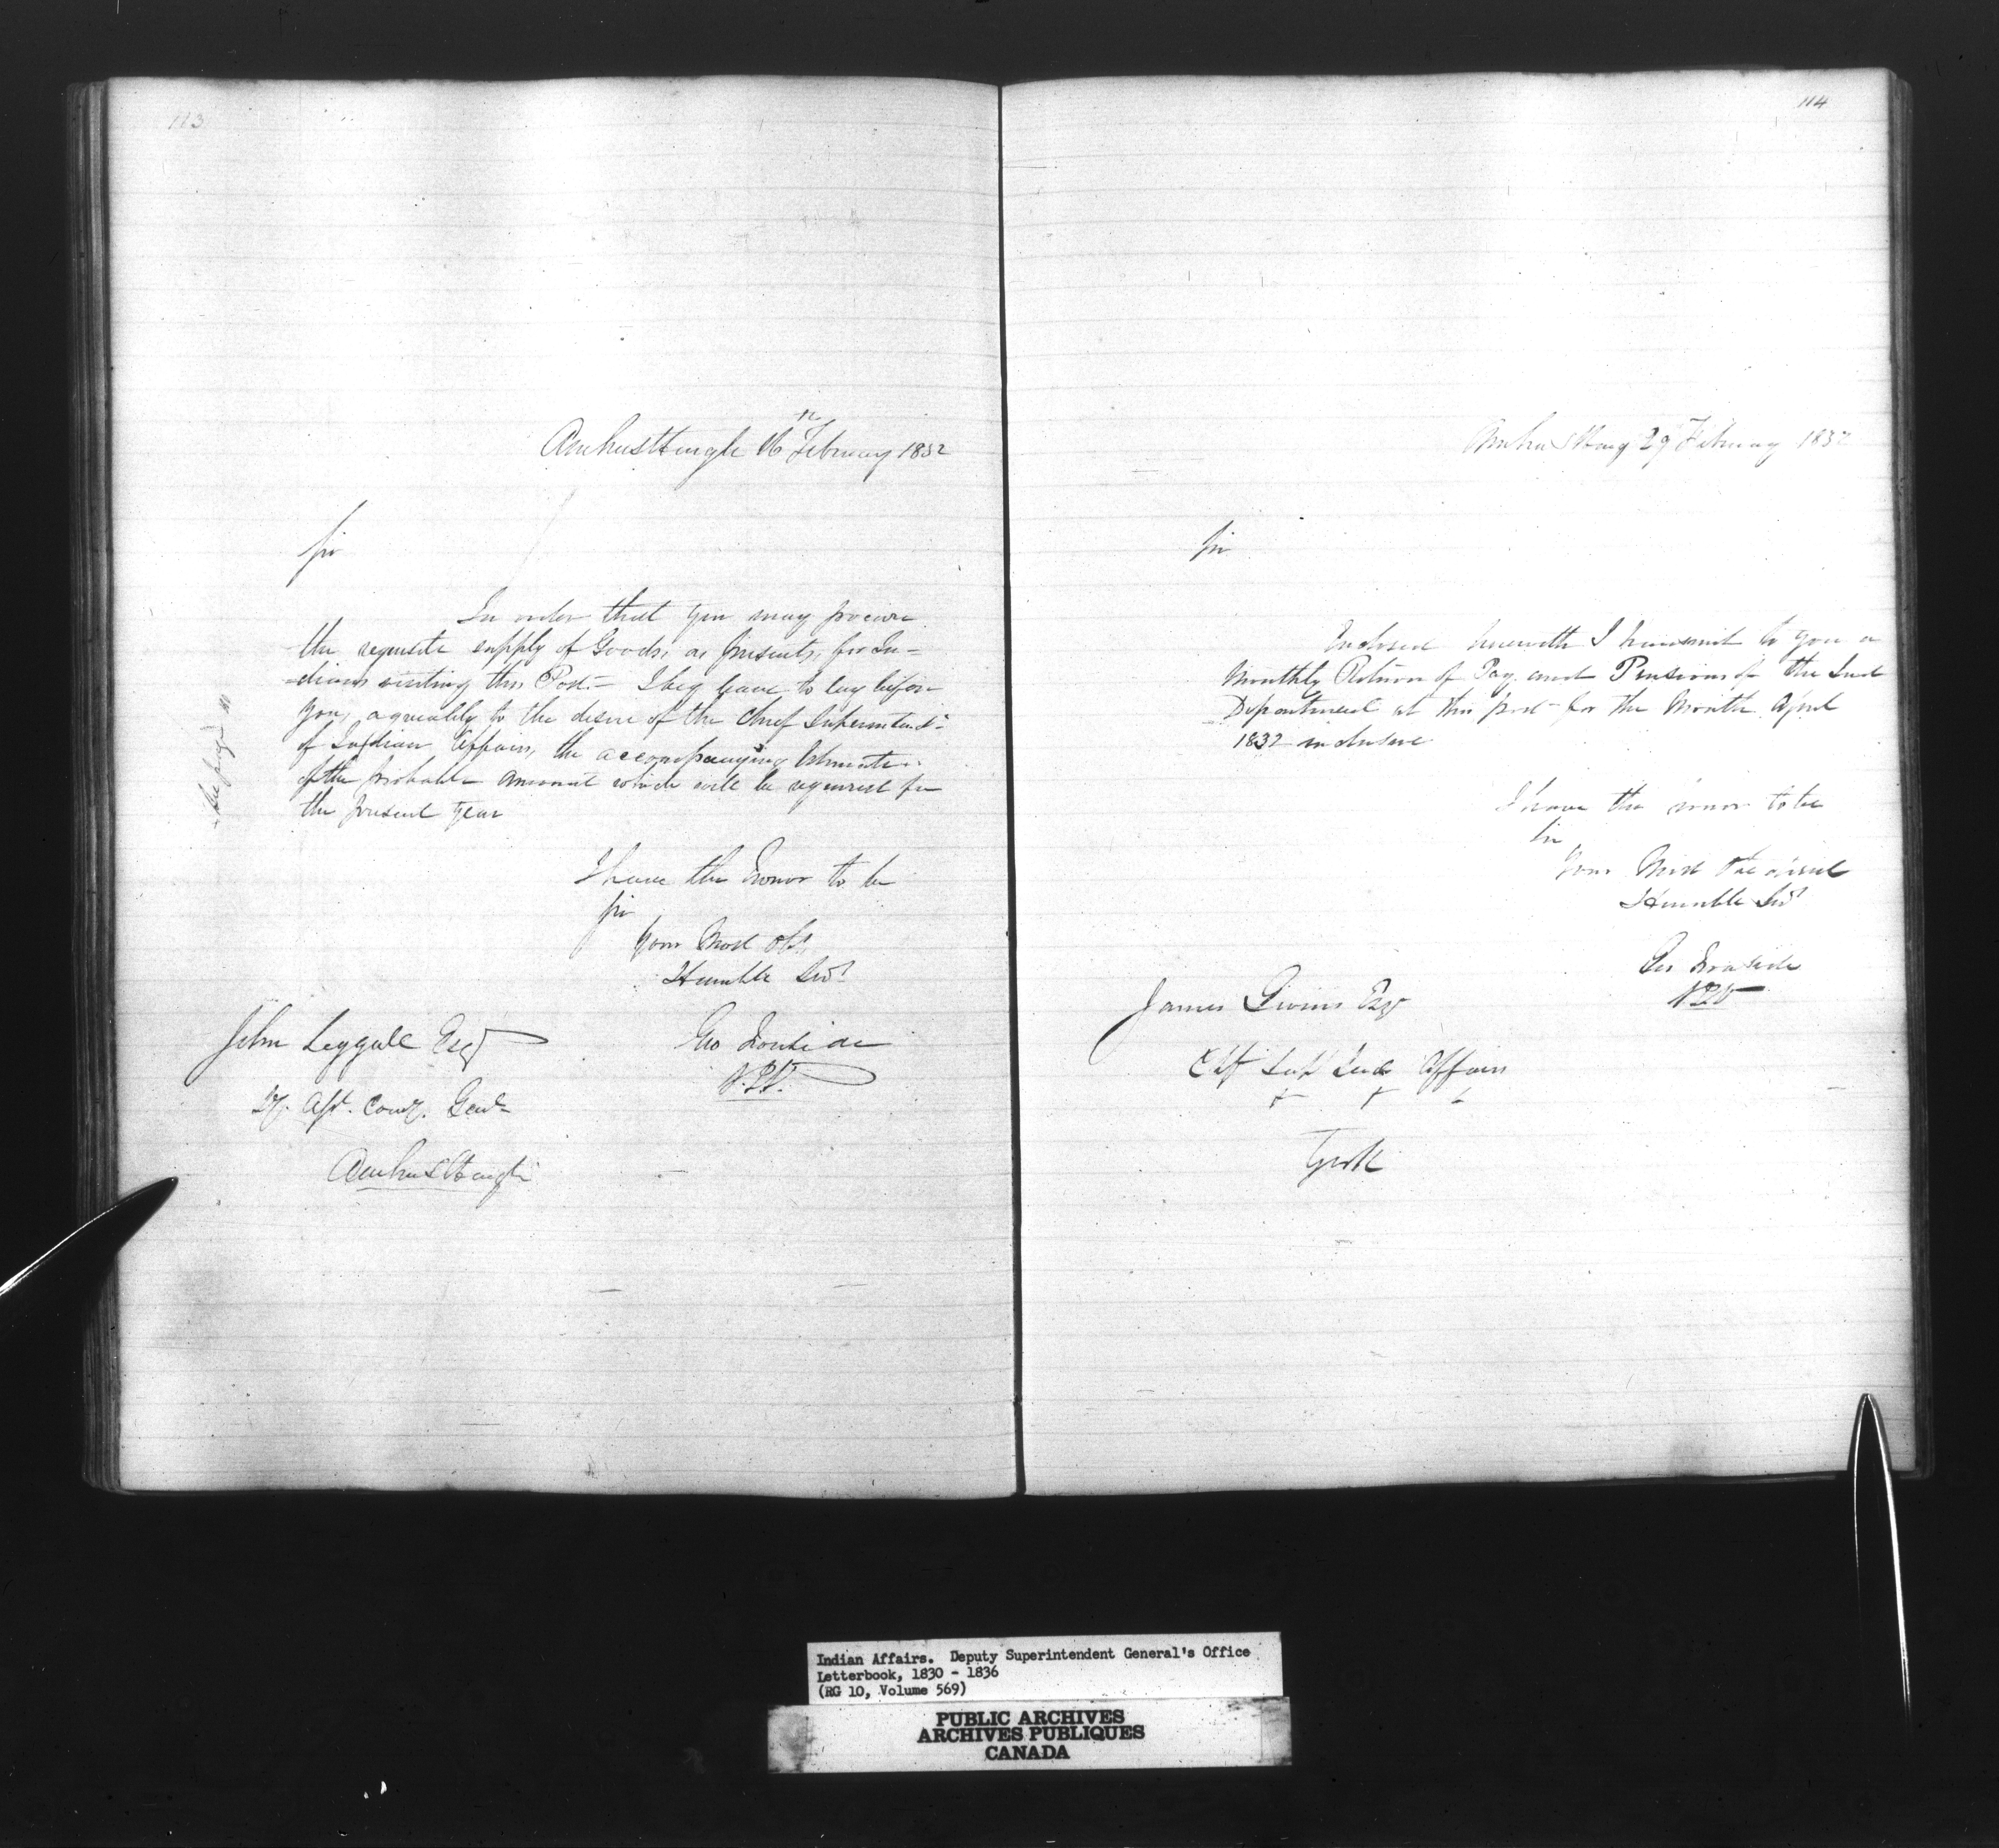 113
Amherstburgh 16th February 1832
Sir
In order that you may procure
the requisite supply of Goods, as presents, for In-
-dians visiting this Post.- I beg leave to lay before
you, agreeably to the desire of the Chief Superintendt.
of Indian Affairs, the accompanying Estimate
of the probable amount which will be required for
the present year
See page
I have the Honor to be
Sir
Your Most Obt.
Humble Servt
Geo Ironside
John Leggatt Esqr
Dy. Asst. Comy. Genl-
Amherstburgh
114
Amherstburg 29 February 1832
Sir
Enclosed herewith I transmit to you a
Monthly Return of Pay and Pensions of the Ind
Department at this post for the Month April
1832 inclusive
I have the honor to be
Sir
Your Most Obedient
Humble Servt
Geo Ironside
James Givins Esqr
Chf Supt Ind Affairs
York
Indian Affairs. Deputy Superintendent General's Office
Letterbook, 1830 - 1836
(RG 10, Volume 569)
PUBLIC ARCHIVES
ARCHIVES PUBLIQUES
CANADA